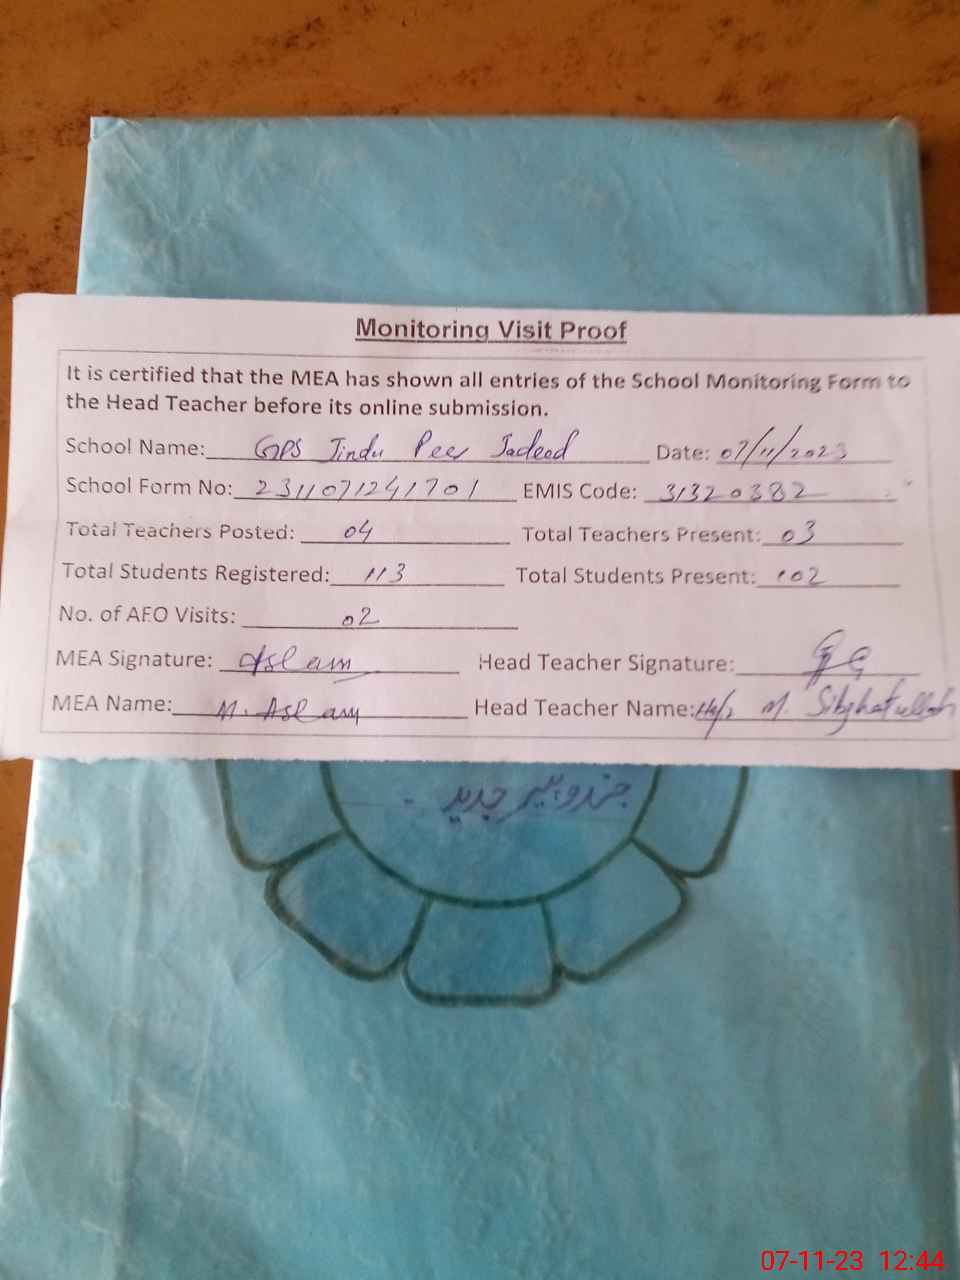 Monitoring Visit Proof
It is certified that the MEA has shown all entries of the School Monitoring Form to
the Head Teacher before its online submission.
School Name: GPS Jindu Peer Jadeed Date: 07/11/2023
School Form No: 2311071241701 EMIS Code: 31320382
Total Teachers Posted: 04 Total Teachers Present: 03
Total Students Registered: 113 Total Students Present: 102
No. of AEO Visits: 02
MEA Signature: Aslam Head Teacher Signature:
MEA Name: M. Aslam Head Teacher Name: M. Sibghatullah
جندو پیر جدید
07-11-23 12:44